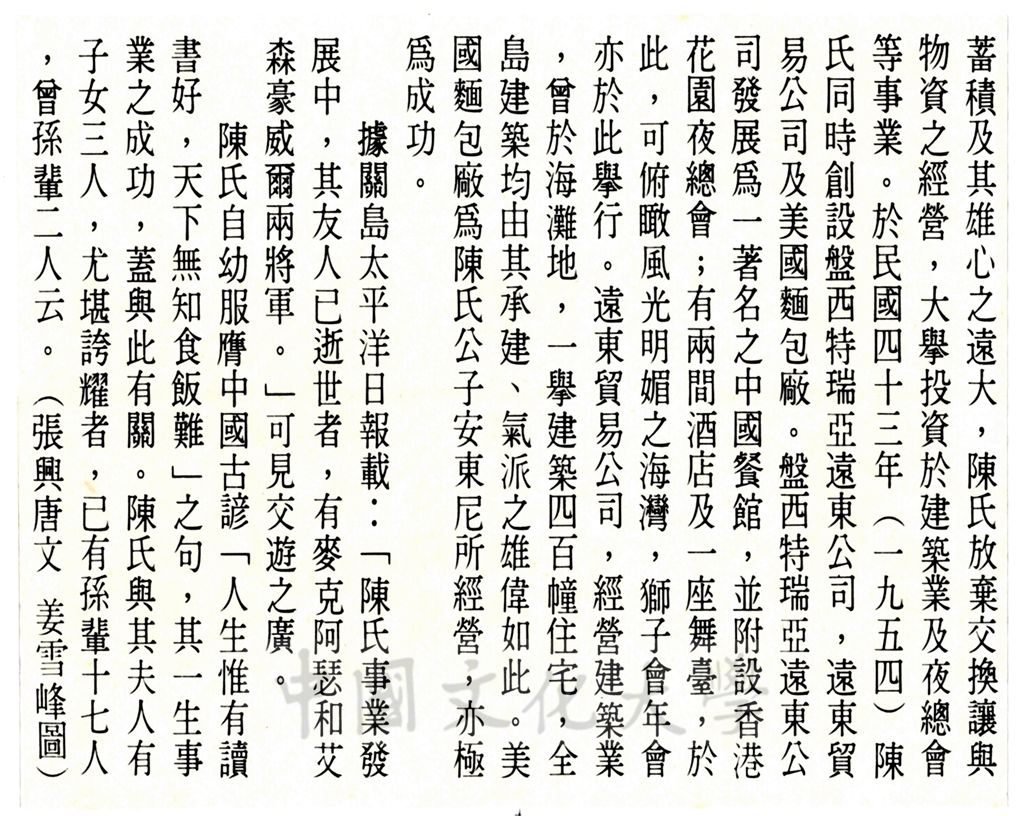 蓄積及其雄心之遠大，陳氏放棄交換讓與
物資之經營，大舉投資於建築業及夜總會
等事業。於民國四十三年（一九五四）陳
氏同時創設盤西特瑞亞遠東公司，遠東貿
易公司及美國麵包廠。盤西特瑞亞遠東公
司發展爲一著名之中國餐館，並附設香港
花園夜總會；有兩間酒店及一座舞臺，於
此，可俯瞰風光明媚之海灣，獅子會年會
亦於此舉行。遠東貿易公司，經營建築業
，曾於海灘地，一舉建築四百幢住宅，全
島建築均由其承建、氣派之雄偉如此。美
國麵包廠爲陳氏公子安東尼所經營，亦極
爲成功。
據關島太平洋日報載：「陳氏事業發
展中，其友人已逝世者，有麥克阿瑟和艾
森豪威爾兩將軍。」可見交遊之廣。
陳氏自幼服膺中國古諺「人生惟有讀
書好，天下無知食飯難」之句，其一生事
業之成功，蓋與此有關。陳氏與其夫人有
子女三人，尤堪誇耀者，已有孫輩十七人
，曾孫輩二人云。（張興唐文 姜雪峰圖）
中國文化大學